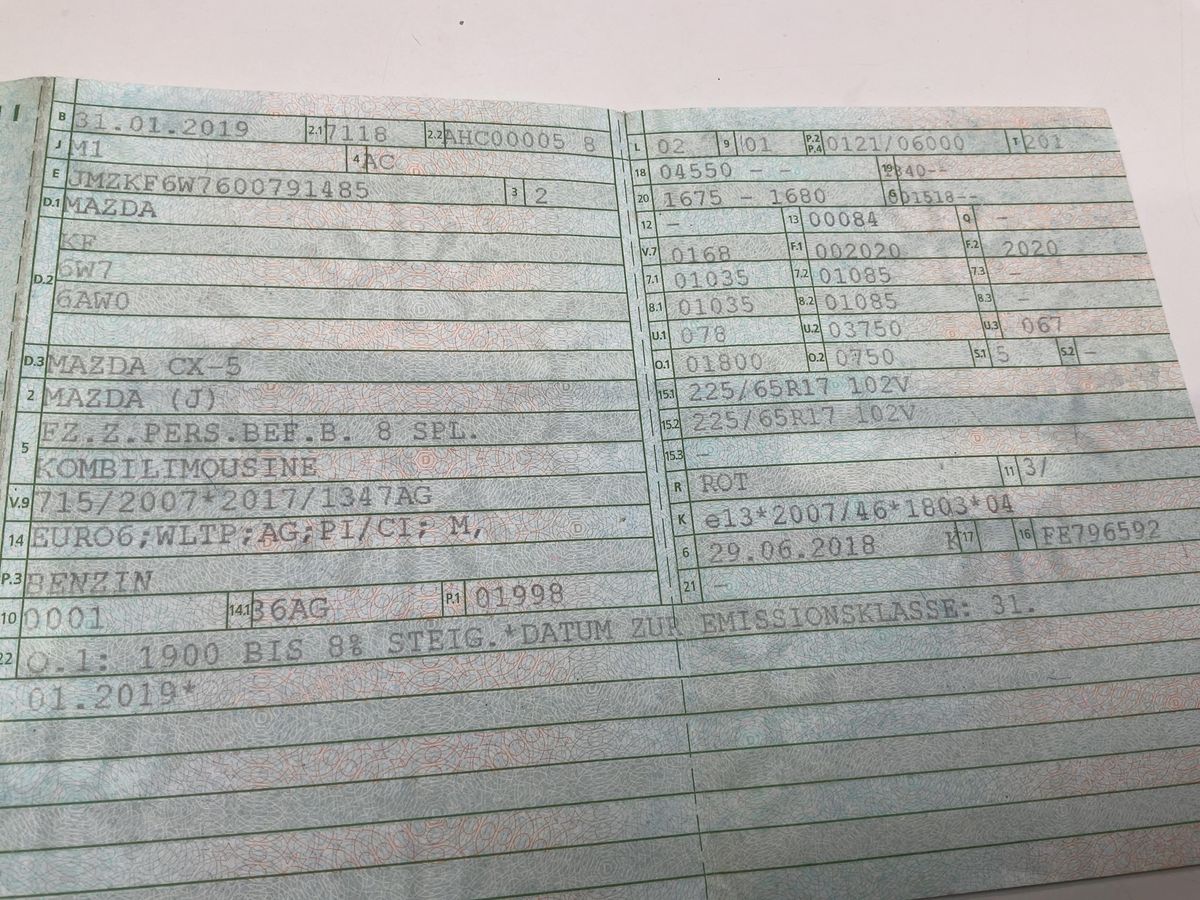 B 31.01.2019 2.1 7118 2.2 AHC00005 8
J M1 4 AC
E JMZKF6W7600791485 3 2
D.1 MAZDA
D.2 KF
6W7
6AW0
D.3 MAZDA CX-5
2 MAZDA (J)
5 FZ.Z.PERS.BEF.B. 8 SPL.
KOMBILIMOUSINE
V.9 715/2007*2017/1347AG
14 EURO6;WLTP;AG;PI/CI; M,
P.3 BENZIN
10 0001 14.1 36AG P.1 01998
L 02 9 01 P.2 P.4 0121/06000 T 201
18 04550 - - 19 1840--
20 1675 - 1680 G 001518--
12 - 13 00084 Q -
V.7 0168 F.1 002020 F.2 2020
7.1 01035 7.2 01085 7.3 -
8.1 01035 8.2 01085 8.3 -
U.1 078 U.2 03750 U.3 067
O.1 01800 O.2 0750 S.1 5 S.2 -
15.1 225/65R17 102V
15.2 225/65R17 102V
15.3 -
R ROT 11 3/
K e13*2007/46*1803*04
6 29.06.2018 17 K 16 FE796592
21 -
22 O.1: 1900 BIS 8% STEIG.*DATUM ZUR EMISSIONSKLASSE: 31.
01.2019*